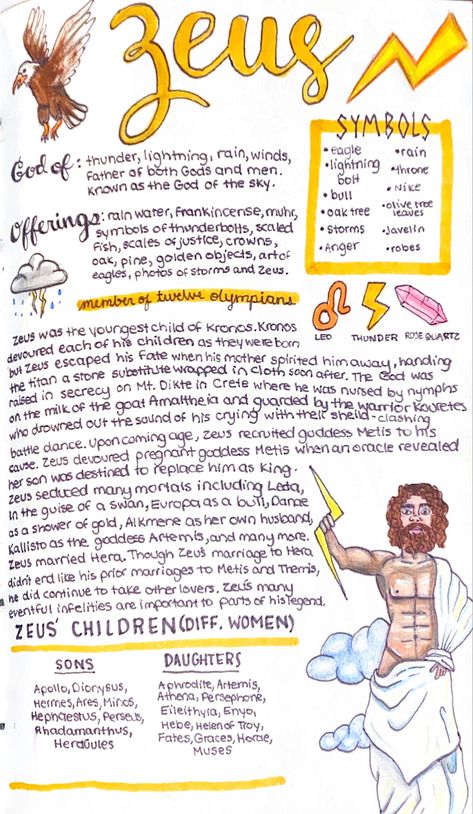 Zeus
God of: thunder, lightning, rain, winds,
father of both Gods and men.
Known as the God of the sky.
Offerings: rain water, frankincense, muhr,
symbols of thunderbolts, scaled
fish, scales of justice, crowns,
oak, pine, golden objects, art of
eagles, photos of storms and Zeus.
SYMBOLS
• eagle
• lightning
bolt
• bull
• oak tree
• storms
• Anger
• rain
• throne
• Nike
• olive tree
leaves
• Javelin
• robes
member of twelve olympians
LEO THUNDER ROSE QUARTZ
Zeus was the youngest child of Kronos. Kronos
devoured each of his children as they were born
but Zeus escaped his fate when his mother spirited him away, handing
the titan a stone substitute wrapped in cloth soon after. The God was
raised in secrecy on Mt. Dikte in Crete where he was nursed by nymphs
on the milk of the goat Amaltheia and guarded by the warrior Kouretes
who drowned out the sound of his crying with their sheild-clashing
battle dance. Upon coming age, Zeus recruited goddess Metis to his
cause. Zeus devoured pregnant goddess Metis when an oracle revealed
her son was destined to replace him as King.
Zeus seduced many mortals including Leda,
in the guise of a swan, Europa as a bull, Danae
as a shower of gold, Alkmene as her own husband,
Kallisto as the goddess Artemis, and many more.
Zeus married Hera. Though Zeus marriage to Hera
didn't end like his prior marriages to Metis and Themis,
he did continue to take other lovers. Zeus many
eventful infelities are important to parts of his legend.
ZEUS' CHILDREN (DIFF. WOMEN)
SONS
Apollo, Dionysus,
Hermes, Ares, Minos,
Hephaestus, Perseus,
Rhadamanthus,
Heracules
DAUGHTERS
Aphrodite, Artemis,
Athena, Persephone,
Eileithyia, Enyo,
Hebe, Helen of Troy,
Fates, Graces, Horae,
Muses